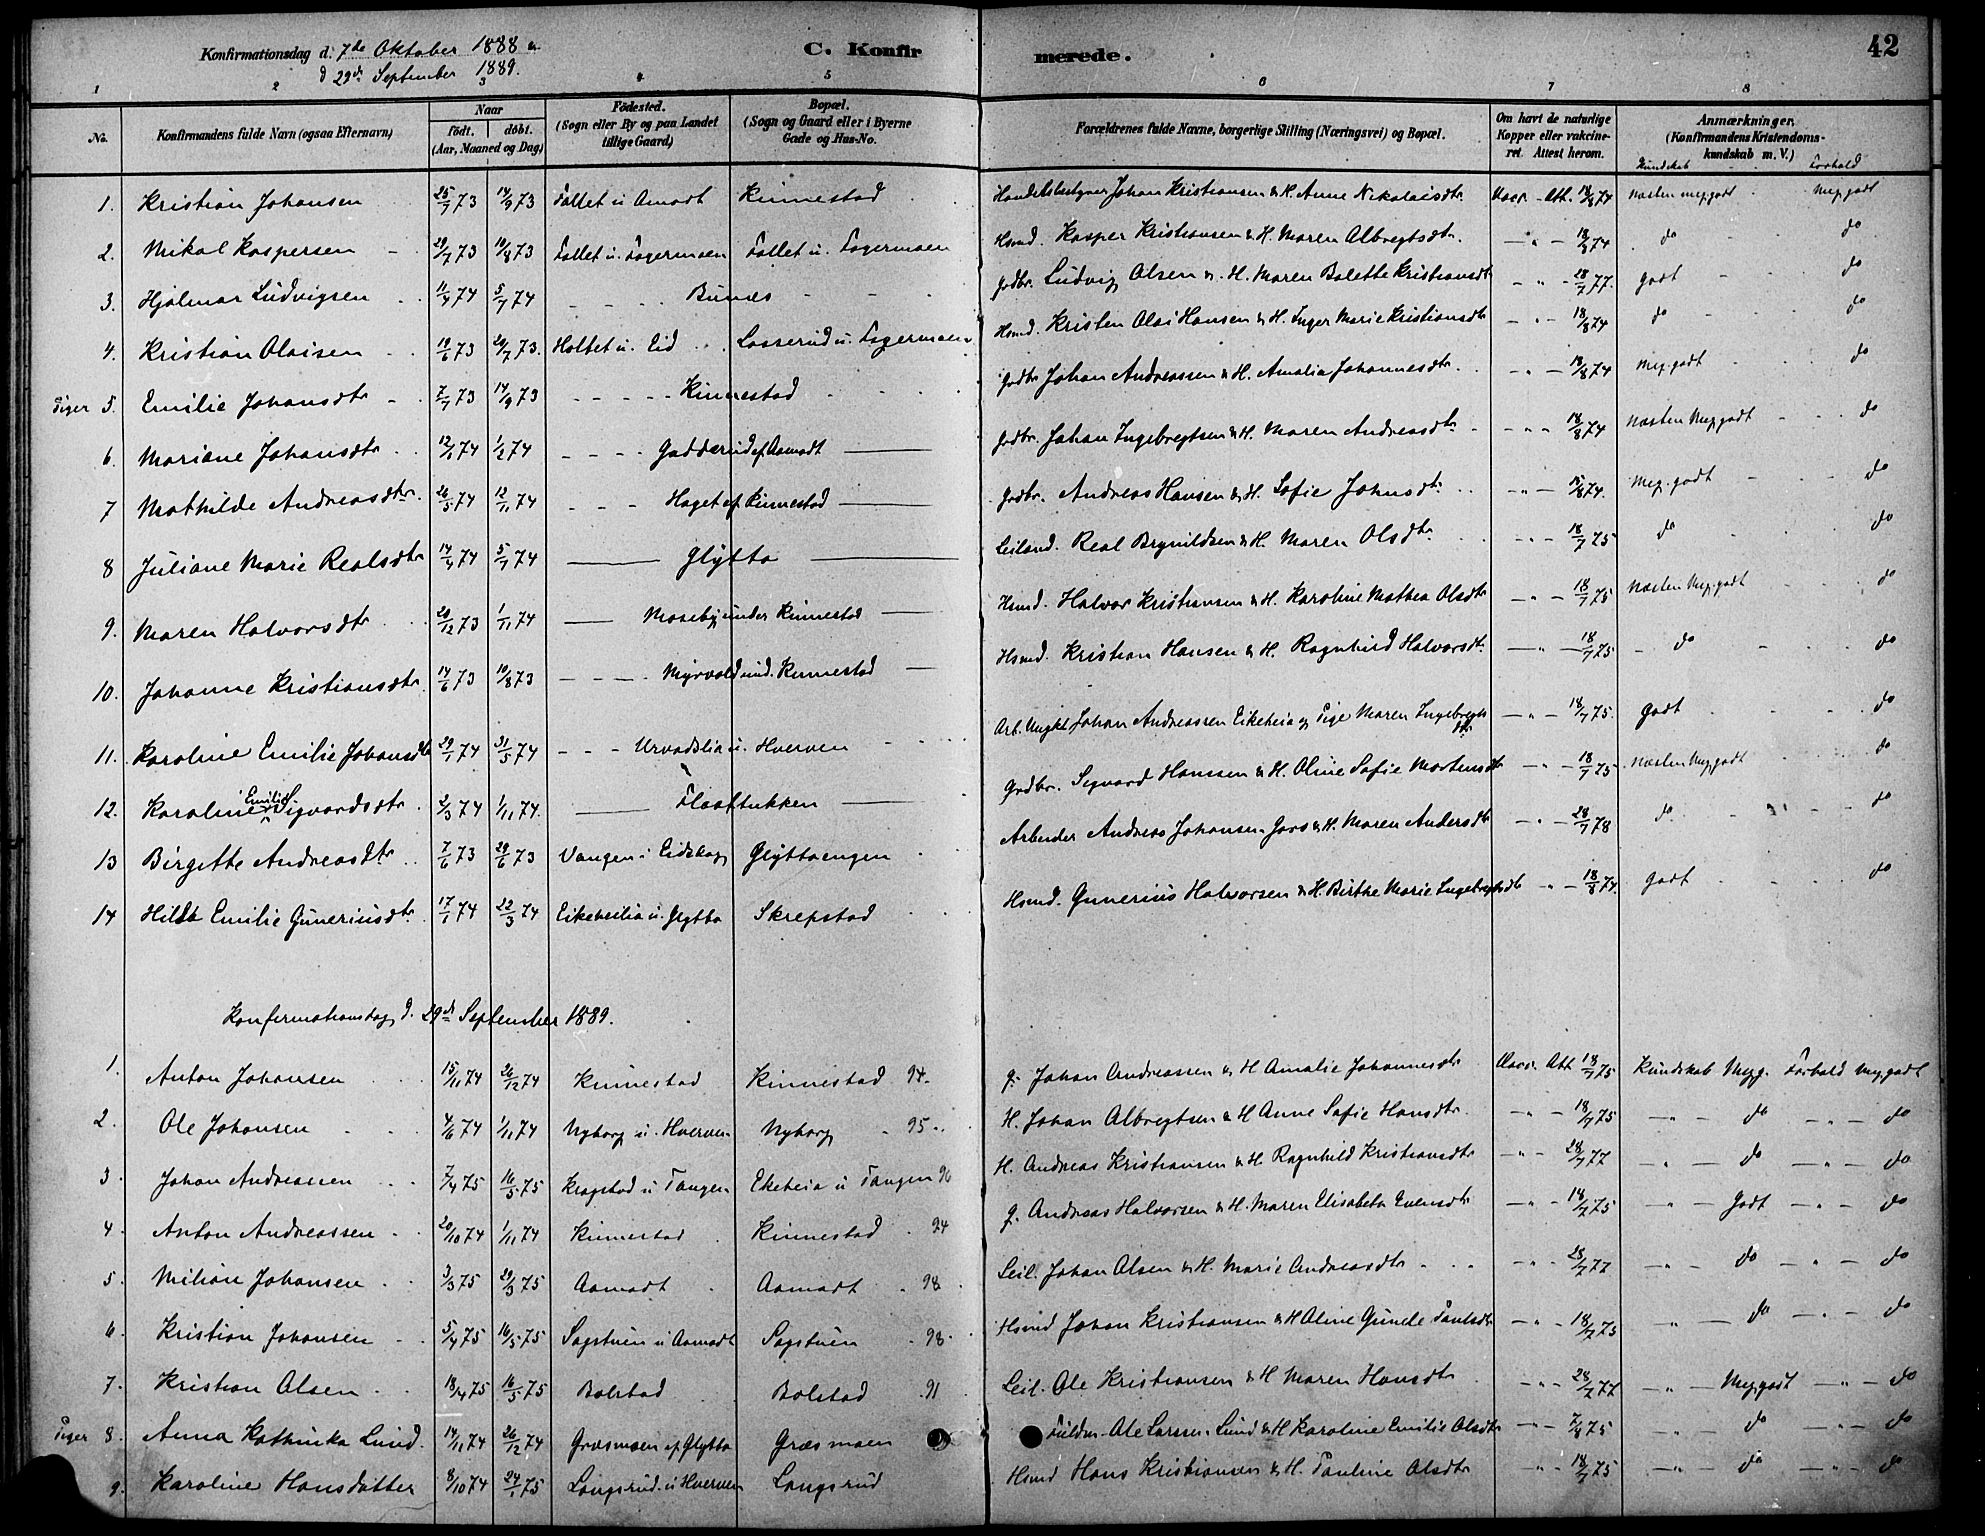 Konfirmationsdag d. 7de Oktober 1888 &
d 29de September 1889.
C. Konfir merede. 42
1 2 3 4 5 6 7 8
No. Konfirmandens fulde Navn (ogsaa Efternavn) Naar født. døbt. (Aar, Maaned og Dag) Fødested. (Sogn eller By og paa Landet tillige Gaard) Bopæl. (Sogn og Gaard eller i Byerne Gade og Hus-No. Forældrenes fulde Navne, borgerlige Stilling (Næringsvei) og Bopæl. Om havt de naturlige Kopper eller vakcineret. Attest herom. Anmærkninger. (Konfirmandens Kristendomskundskab m. V.) Kundskab Forhold
1. Kristian Johansen 25/7 73 14/9 73 Fallet u Amodt Kinnestad Handelsbestyrer Johan Kristiansen & H. Anne Nikolaisdtr. Vacc. Att. 18/8 74 Næsten meg. godt Meg. godt
2. Mikal Kaspersen 29/7 73 10/8 73 Fallet u. Fagermoen Fallet u. Fagermoen Hsmd. Kasper Kristiansen & H. Maren Albregtsdtr. — " — 18/8 74 do do
3. Hjalmar Ludvigsen 11/4 74 5/7 74 Bunæs Gdbr. Ludvig Olsen & H. Maren Bolette Kristiansdtr — " — 28/7 77. Godt do
4. Kristian Olaisen 10/6 73 20/7 73. Holtet u. Eid Losserud u. Fagermoen Hsmd. Kristen Olai Hansen & H. Inger Marie Kristiansdtr — " — 18/8 74 do do
Piger 5. Emilie Johansdtr 2/7 73 14/9 73 Kinnestad Gdbr Johan Andreassen & H. Amalia Johannesdtr. — " — 18/8 74 Meg. godt do
6. Mariane Johansdtr 12/1 74 1/2 74 Gadderud af Aamodt Gdbr. Johan Ingebregtsen & H. Maren Andreasdtr. — " — 18/8 74 Næsten Meg. godt do
7 Mathilde Andreasdtr. 26/5 74 12/11 74 Haget af Kinnestad Gdbr. Andreas Hansen & H. Sofie Johnsdtr. — " — 18/8 74. Meg. godt do
8 Juliane Marie Realsdtr 14/4 74 5/7 74 Glytta Leiland. Real Brynildsen & H. Maren Olsdtr. — " — 18/7 75 do do
9. Maren Halvorsdtr 20/12 73 1/11 74 Moseby under Kinnestad Hsmd. Halvor Kristiansen & H. Karoline Mathea Olsdtr — " — 18/7 75 Næsten Meg. godt do
10. Johanne Kristiansdtr 14/6 73 10/8 73 Myrvold und. Kinnestad Hsmd. Kristian Hansen & H. Ragnhild Halvorsdtr. — " — 18/7 75 do do
11. Karoline Emilie Johansdtr 29/1 74 31/5 74 Urvadslia u. Hverven Arb. Ungkl Johan Andreassen Eikeheia og Pige Maren Ingebregtsdtr. — " — 18/7 75. Godt do
12. Karoline Emilie Sigvardsdtr. 2/3 74 1/11 74. Flaaftukken Grdbr. Sigvard Hanssen & H. Oline Sofie Martensdtr — " — 18/7 75 Næsten Meg. godt do
13 Birgitte Andreasdtr. 7/6 73 29/6 73 Vangen i Eidskog Glyttaengen Arbeider Andreas Johansen Jaas & H. Maren Andersdtr — " — 28/7 78 do do
14 Hilda Emilie Guneriusdtr. 17/1 74 22/3 74 Eikeheilia u. Glytta Skrepstad Hsmd. Gunerius Halvorsen & H. Birthe Marie Ingebregtsdtr — " — 18/8 74. Godt do
Konfirmationsdag d. 29de September 1889.
1. Anton Johansen 15/11 74 26/12 74 Kinnestad Kinnestad 94. g. Johan Andreassen & H Amalie Johannesdtr Vacc. Att 18/7 75 Kundskab Meg. Forhold Meg. godt
2. Ole Johansen 4/6 74 1/11 74 Nyborg u. Hverven Nyborg 95 H. Johan Albregtsen & H Anne Sofie Hansdtr. — " — 18/7 75 — " — do — " — do
3. Johan Andreassen 7/4 75 16/5 75 Kragstad u Tangen Ekeheia u Tangen 96 H. Andreas Kristiansen & H. Ragnhild Kristiansdtr — " — 28/7 77 — " — do — " — do
4. Anton Andreassen 20/10 74 1/11 74 Kinnestad Kinnestad 94 g. Andreas Halvorsen & H. Maren Elisabeth Evensdtr — " — 18/7 75 — " — Godt — " — do
5. Milian Johansen 3/3 75 29/3 75 Aamodt Aamodt 98 Leil. Johan Olsen & H. Marie Andreasdtr — " — 28/7 77 — " — do — " — do
6. Kristian Johansen 5/4 75 16/5 75 Sagstuen u Aamodt Sagstuen 98 Hsmd Johan Kristiansen & H Oline Gunele Paulsdtr — " — 18/7 75 — " — do — " — do
7. Kristian Olsen 18/4 75 16/5 75 Bolstad Bolstad 91 Leil. Ole Kristiansen & H Maren Hansdtr — " — 28/7 77 — " — Meg. godt — " — do
Piger 8. Anna Kathinka Lund. 14/11 74 26/12 74 Græsmoen af Glytta Græsmoen Fuldm. Ole Larsen Lund & H Karoline Emilie Olsdtr — " — 7/9 75 — " — do — " — do
9. Karoline Hansdatter 8/10 74 24/1 75 Langsrud u Hverven Langsrud Hsmd Hans Kristiansen & H. Pauline Olsdtr — " — 18/7 75 — " — do — " — do